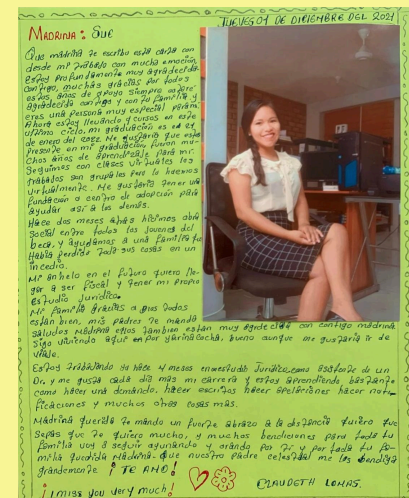 JUEVES 01 DE DICIEMBRE DEL 2021
MADRINA: SUE
Que madrina te escribo esta carta con
desde mi trabajo con mucha emoción
estoy profundamente muy agradecida
contigo, muchas gracias por todos
estos años de apoyo siempre estaré
agradecida contigo y con tu familia y
eres una persona muy especial para mi
Ahora estoy llevando 4 cursos en este
ultimo ciclo, mi graduación es en
de enero del 2022. Me gustaría que estés
presente en mi graduación fueron mu-
chos años de aprendizaje para mi.
Seguimos con clases virtuales los
trabajos son grupales pero lo hacemos
virtualmente. Me gustaría tener una
fundación o centro de adopción para
ayudar así a los demás.
Hace dos meses atrás hicimos obra
Social entre todos los jóvenes del
beca, y ayudamos a una familia que
Había perdido toda sus cosas en un
incedio.
Mi anhelo en el futuro quiero lle-
gar a ser Fiscal y tener mi propio
Estudio Jurídico.
Mi familia gracias a Dios todos
están bien, mis padres te manda
saludos Madrina ellos tambien estan muy agradecida con contigo madrina
Sigo viviendo aquí en por yarinacocha, bueno aunque me gustaria ir de
viaje.
Estoy Trabajando ya hace 4 meses en estudio Jurídico, como asistente de un
Dr, y me gusta cada día más mi carrera y estoy aprendiendo bastante
como hacer una demanda, hacer escritos hacer apelaciones hacer noti-
ficaciones y muchos otras cosas más.
Madrina querida te mando un fuerte abrazo a la distancia quiero que
sepas que te quiero mucho, y muchos bendiciones para toda tu
familia voy a seguir ayunando y orando por ti y por toda tu fa-
milia querida Madrina. Que nuestro padre celestial me los bendiga
grandemente ¡TE AMO!
I miss you very much! CLAUDETH LOMAS.